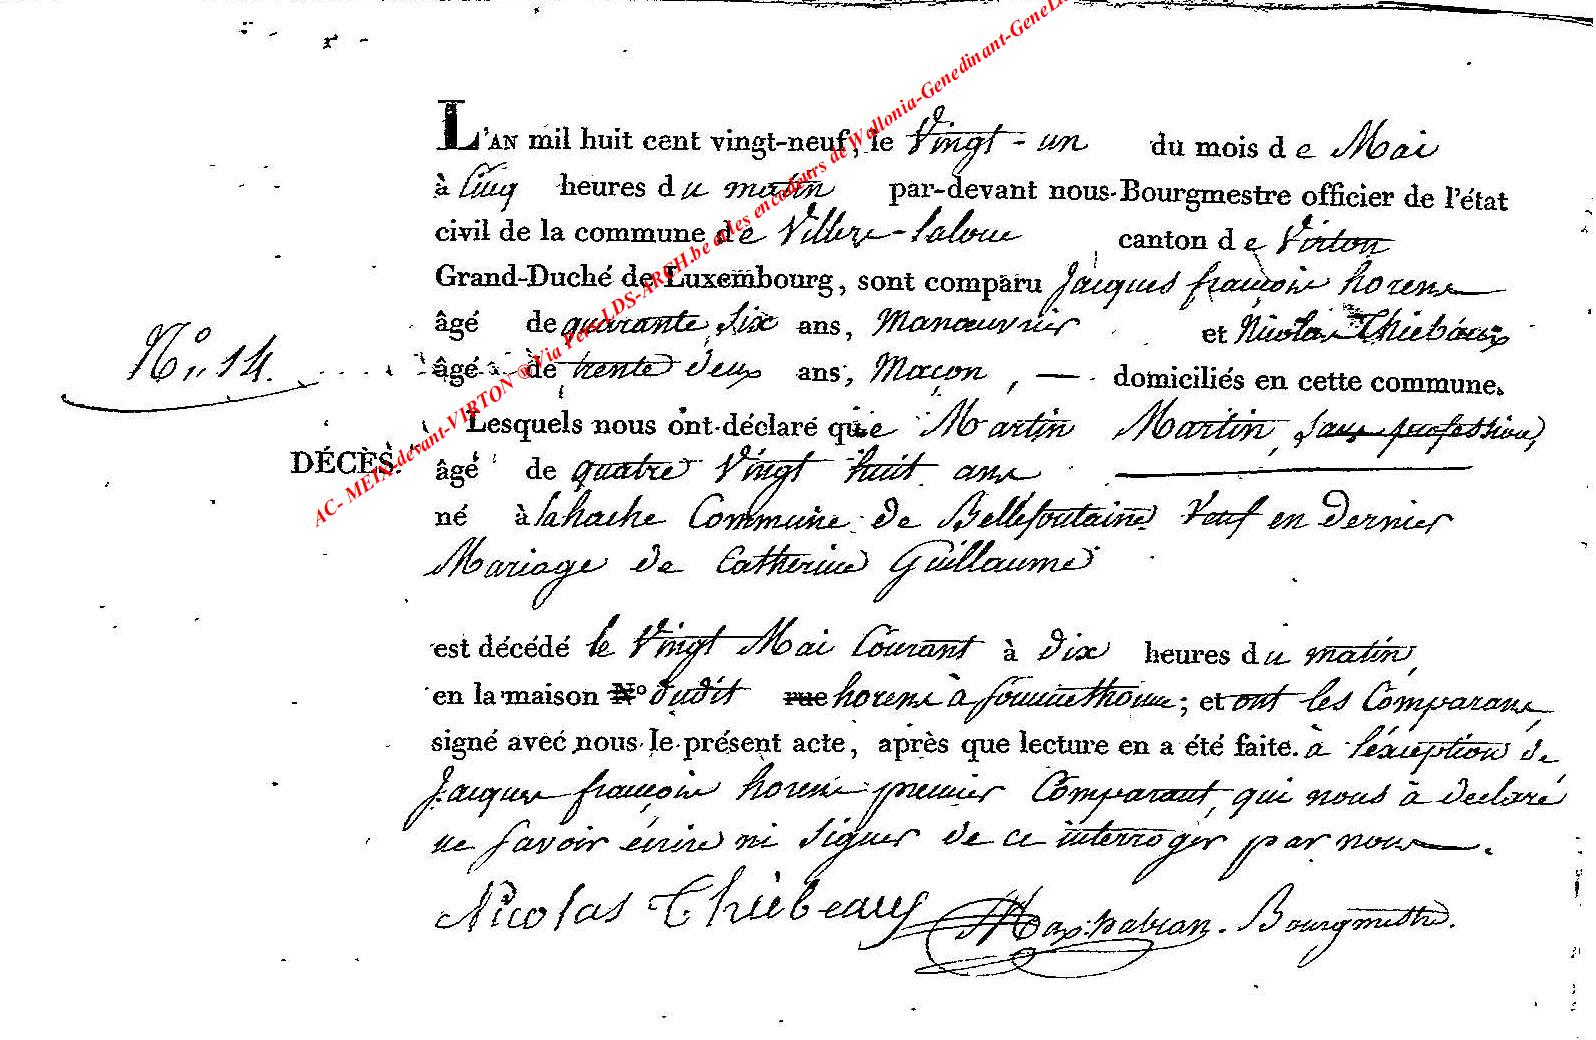 L'AN mil huit cent vingt-neuf, le Vingt-un du mois de Mai
à Cinq heures du matin par-devant nous Bourgmestre officier de l'état
civil de la commune de Villers-laloue canton de Virton
Grand-Duché de Luxembourg, sont comparu Jacques françois horens
âgé de quarante six ans, Manœuvrier et Nicolas Thiebaux
N° 14.
âgé de trente deux ans, Maçon, — domiciliés en cette commune.
Lesquels nous ont déclaré que Martin Martin, sans profession,
DÉCÈS.
âgé de quatre Vingt huit ans
né à lahache Commune de Bellefontaine Veuf en dernier
Mariage de Catherine Guillaume
est décédé le Vingt Mai Courant à dix heures du matin,
en la maison N° dudit rue horens à Sommethonne; et ont les Comparans
signé avec nous le présent acte, après que lecture en a été faite. à l'exception de
Jacques françois horens premier Comparant, qui nous à declaré
ne savoir écrire ni signer de ce interroger par nous.
Nicolas Thiebeaux Bourgmestre.
AC- MEIX-devant-VIRTON ® Via Pere-LDS-ARCH.be et les encodeurs de Wallonia-Genedinant-GeneL